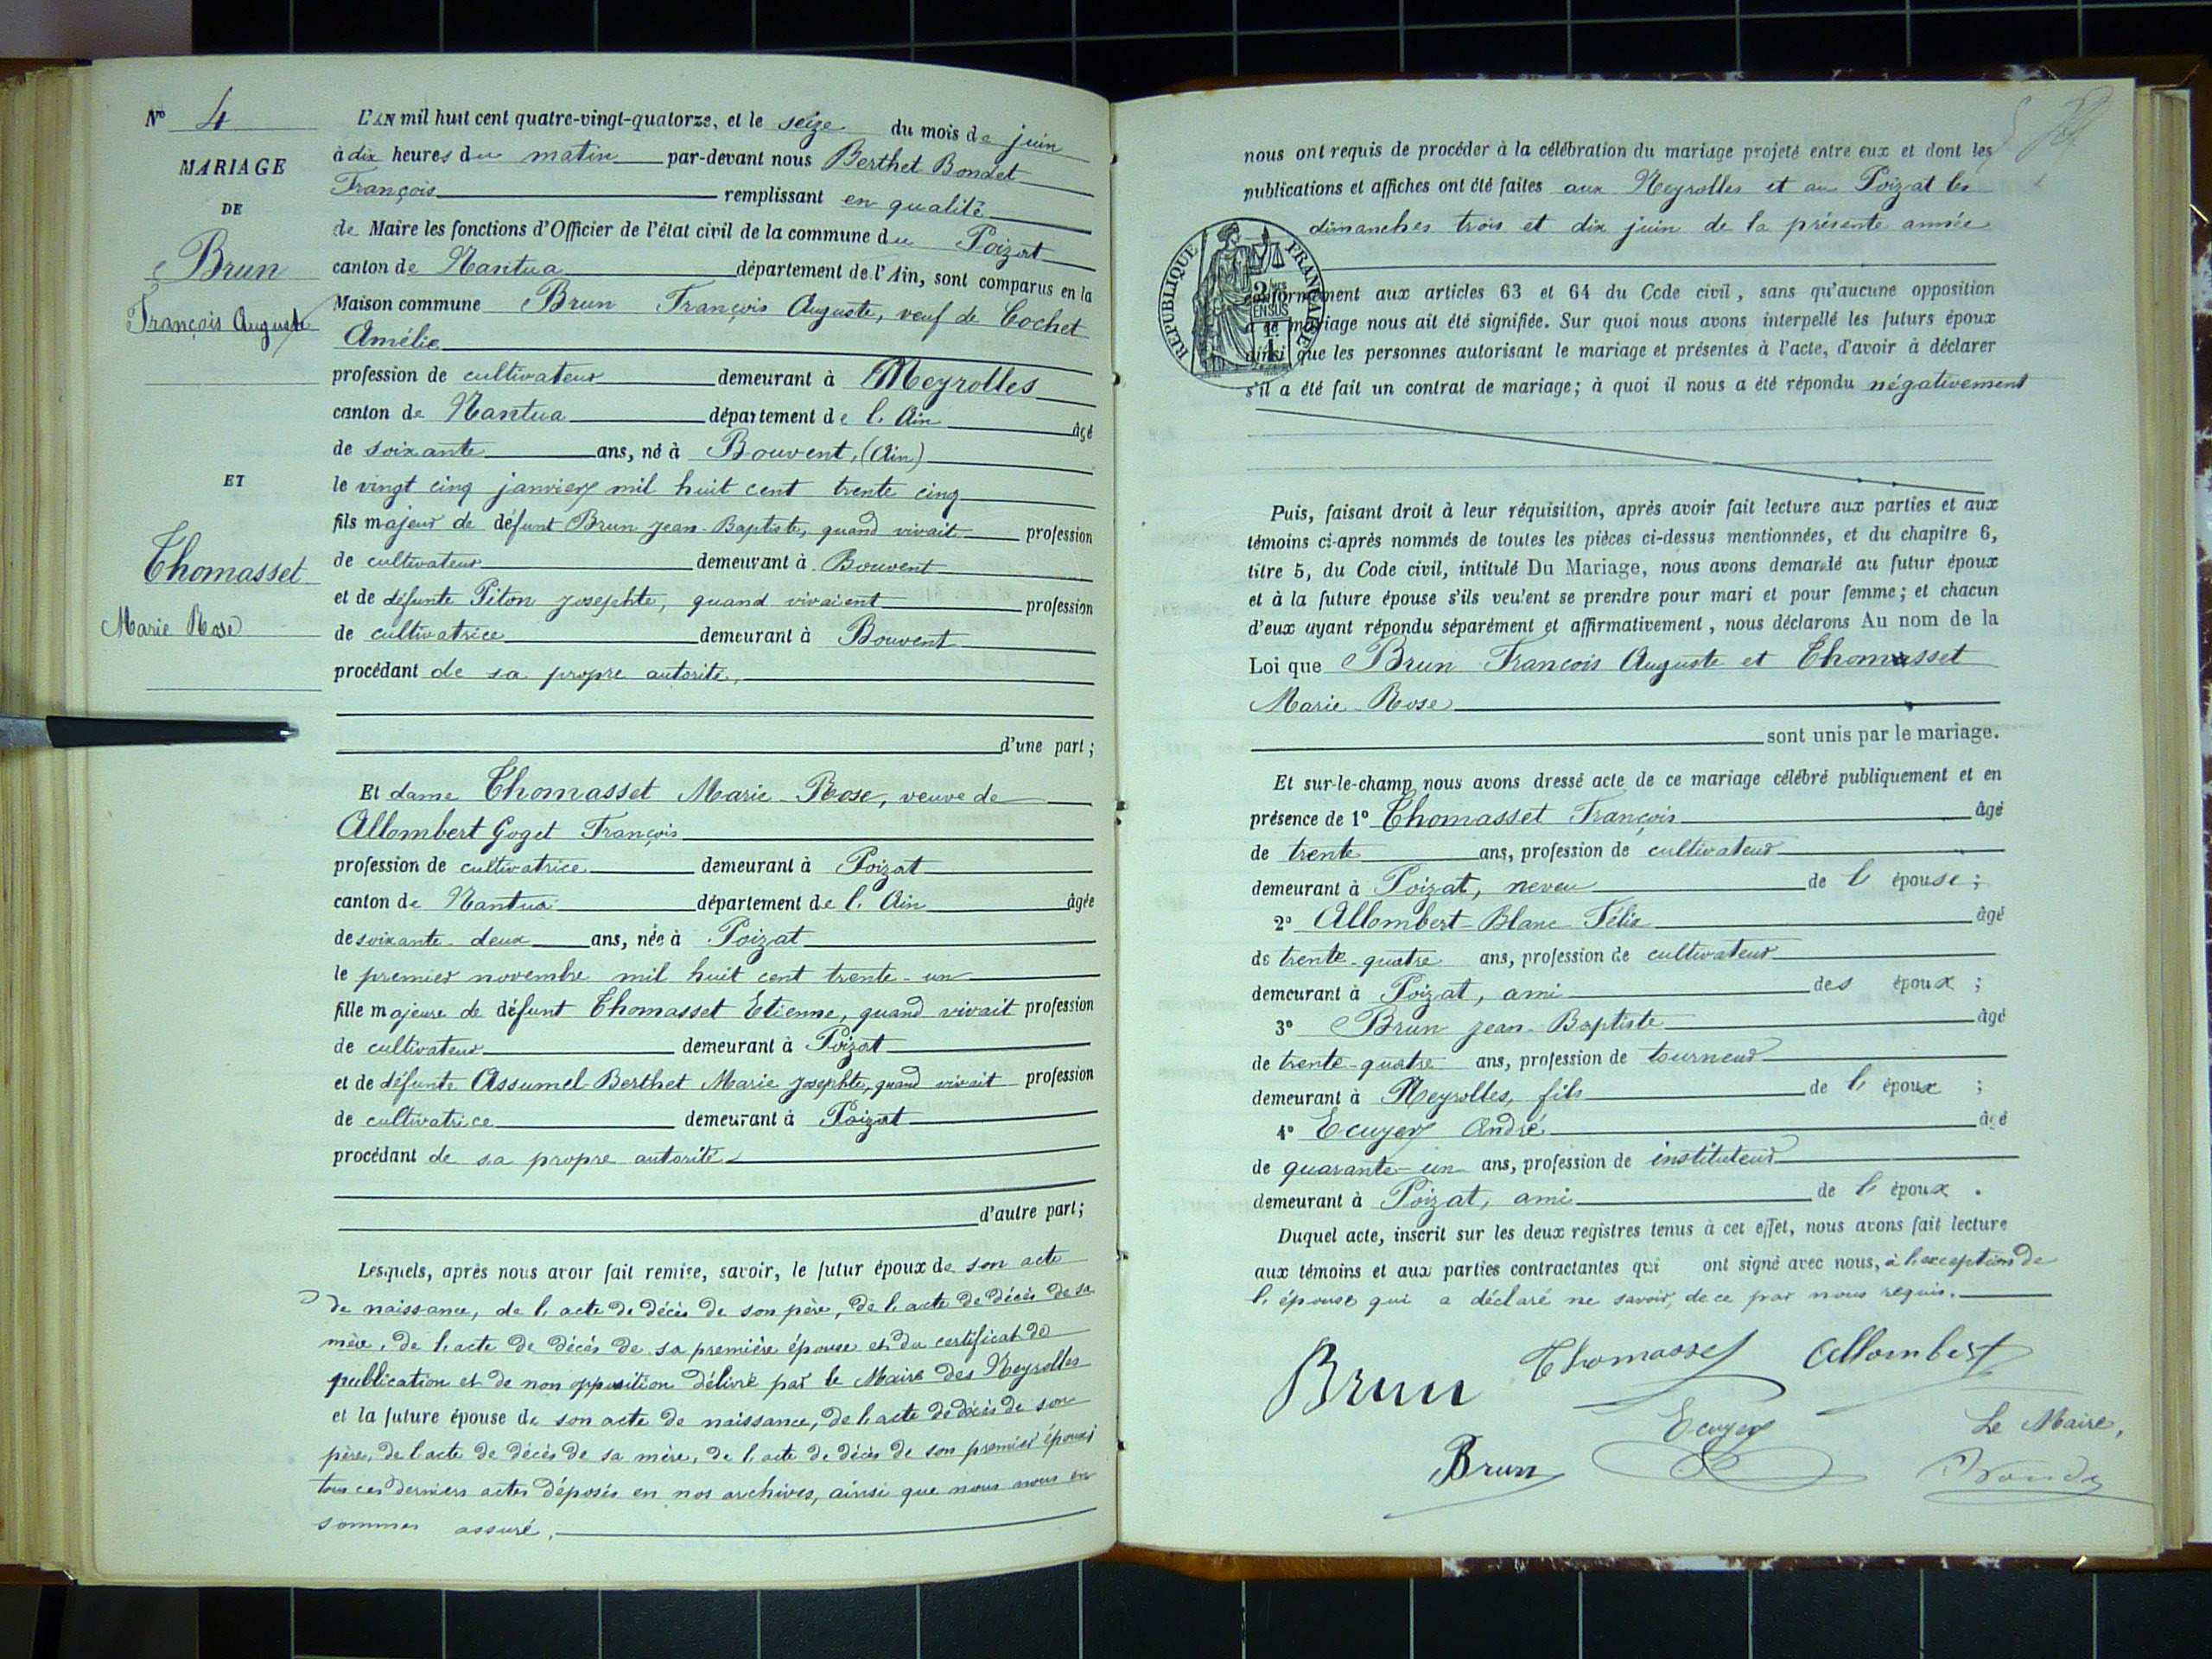 N° 4
MARIAGE
DE
Brun
François Auguste
ET
Thomasset
Marie Rose
L'AN mil huit cent quatre-vingt-quatorze, et le seize du mois de juin
à dix heures du matin par-devant nous Berthet Bondet
François remplissant en qualité
de Maire les fonctions d'Officier de l'état civil de la commune du Poizat
canton de Nantua département de l'Ain, sont comparus en la
Maison commune Brun François Auguste, veuf de Cochet
Amélie
profession de cultivateur demeurant à Neyrolles
canton de Nantua département de l'Ain âgé
de soixante ans, né à Bouvent, (Ain)
le vingt cinq janvier mil huit cent trente cinq
fils majeur de défunt Brun Jean-Baptiste, quand vivait profession
de cultivateur demeurant à Bouvent
et de défunte Piton Josephte, quand vivaient profession
de cultivatrice demeurant à Bouvent
procédant de sa propre autorité,
d'une part;
Et dame Thomasset Marie-Rose, veuve de
Allombert Goget François
profession de cultivatrice demeurant à Poizat
canton de Nantua département de l'Ain âgée
de soixante-deux ans, née à Poizat
le premier novembre mil huit cent trente-un
fille majeure de défunt Thomasset Etienne, quand vivait profession
de cultivateur demeurant à Poizat
et de défunte Assumel-Berthet Marie Josephte, quand vivait profession
de cultivatrice demeurant à Poizat
procédant de sa propre autorité
d'autre part;
Lesquels, après nous avoir fait remise, savoir, le futur époux de son acte
de naissance, de l'acte de décès de son père, de l'acte de décès de sa
mère, de l'acte de décès de sa première épouse et du certificat de
publication et de non opposition délivré par le Maire des Neyrolles
et la future épouse de son acte de naissance, de l'acte de décès de son
père, de l'acte de décès de sa mère, de l'acte de décès de son premier époux
tous ces derniers actes déposés en nos archives, ainsi que nous nous en
sommes assuré,
nous ont requis de procéder à la célébration du mariage projeté entre eux et dont les
publications et affiches ont été faites aux Neyrolles et au Poizat les
dimanches trois et dix juin de la présente année
REPUBLIQUE FRANÇAISE
conformément aux articles 63 et 64 du Code civil, sans qu'aucune opposition
à ce mariage nous ait été signifiée. Sur quoi nous avons interpellé les futurs époux
ainsi que les personnes autorisant le mariage et présentes à l'acte, d'avoir à déclarer
s'il a été fait un contrat de mariage; à quoi il nous a été répondu négativement
Puis, faisant droit à leur réquisition, après avoir fait lecture aux parties et aux
témoins ci-après nommés de toutes les pièces ci-dessus mentionnées, et du chapitre 6,
titre 5, du Code civil, intitulé Du Mariage, nous avons demandé au futur époux
et à la future épouse s'ils veulent se prendre pour mari et pour femme; et chacun
d'eux ayant répondu séparément et affirmativement, nous déclarons Au nom de la
Loi que Brun François Auguste et Thomasset
Marie-Rose
sont unis par le mariage.
Et sur-le-champ nous avons dressé acte de ce mariage célébré publiquement et en
présence de 1° Thomasset François âgé
de trente ans, profession de cultivateur
demeurant à Poizat, neveu de l'épouse;
2° Allombert-Blanc Félix âgé
de trente-quatre ans, profession de cultivateur
demeurant à Poizat, ami des époux;
3° Brun Jean-Baptiste âgé
de trente-quatre ans, profession de tourneur
demeurant à Neyrolles, fils de l'époux;
4° Ecuyer André âgé
de quarante-un ans, profession de instituteur
demeurant à Poizat, ami de l'époux.
Duquel acte, inscrit sur les deux registres tenus à cet effet, nous avons fait lecture
aux témoins et aux parties contractantes qui ont signé avec nous, à l'exception de
l'épouse qui a déclaré ne savoir, de ce par nous requis.
Brun Thomasset Allombert
Ecuyer Le Maire,
Brun